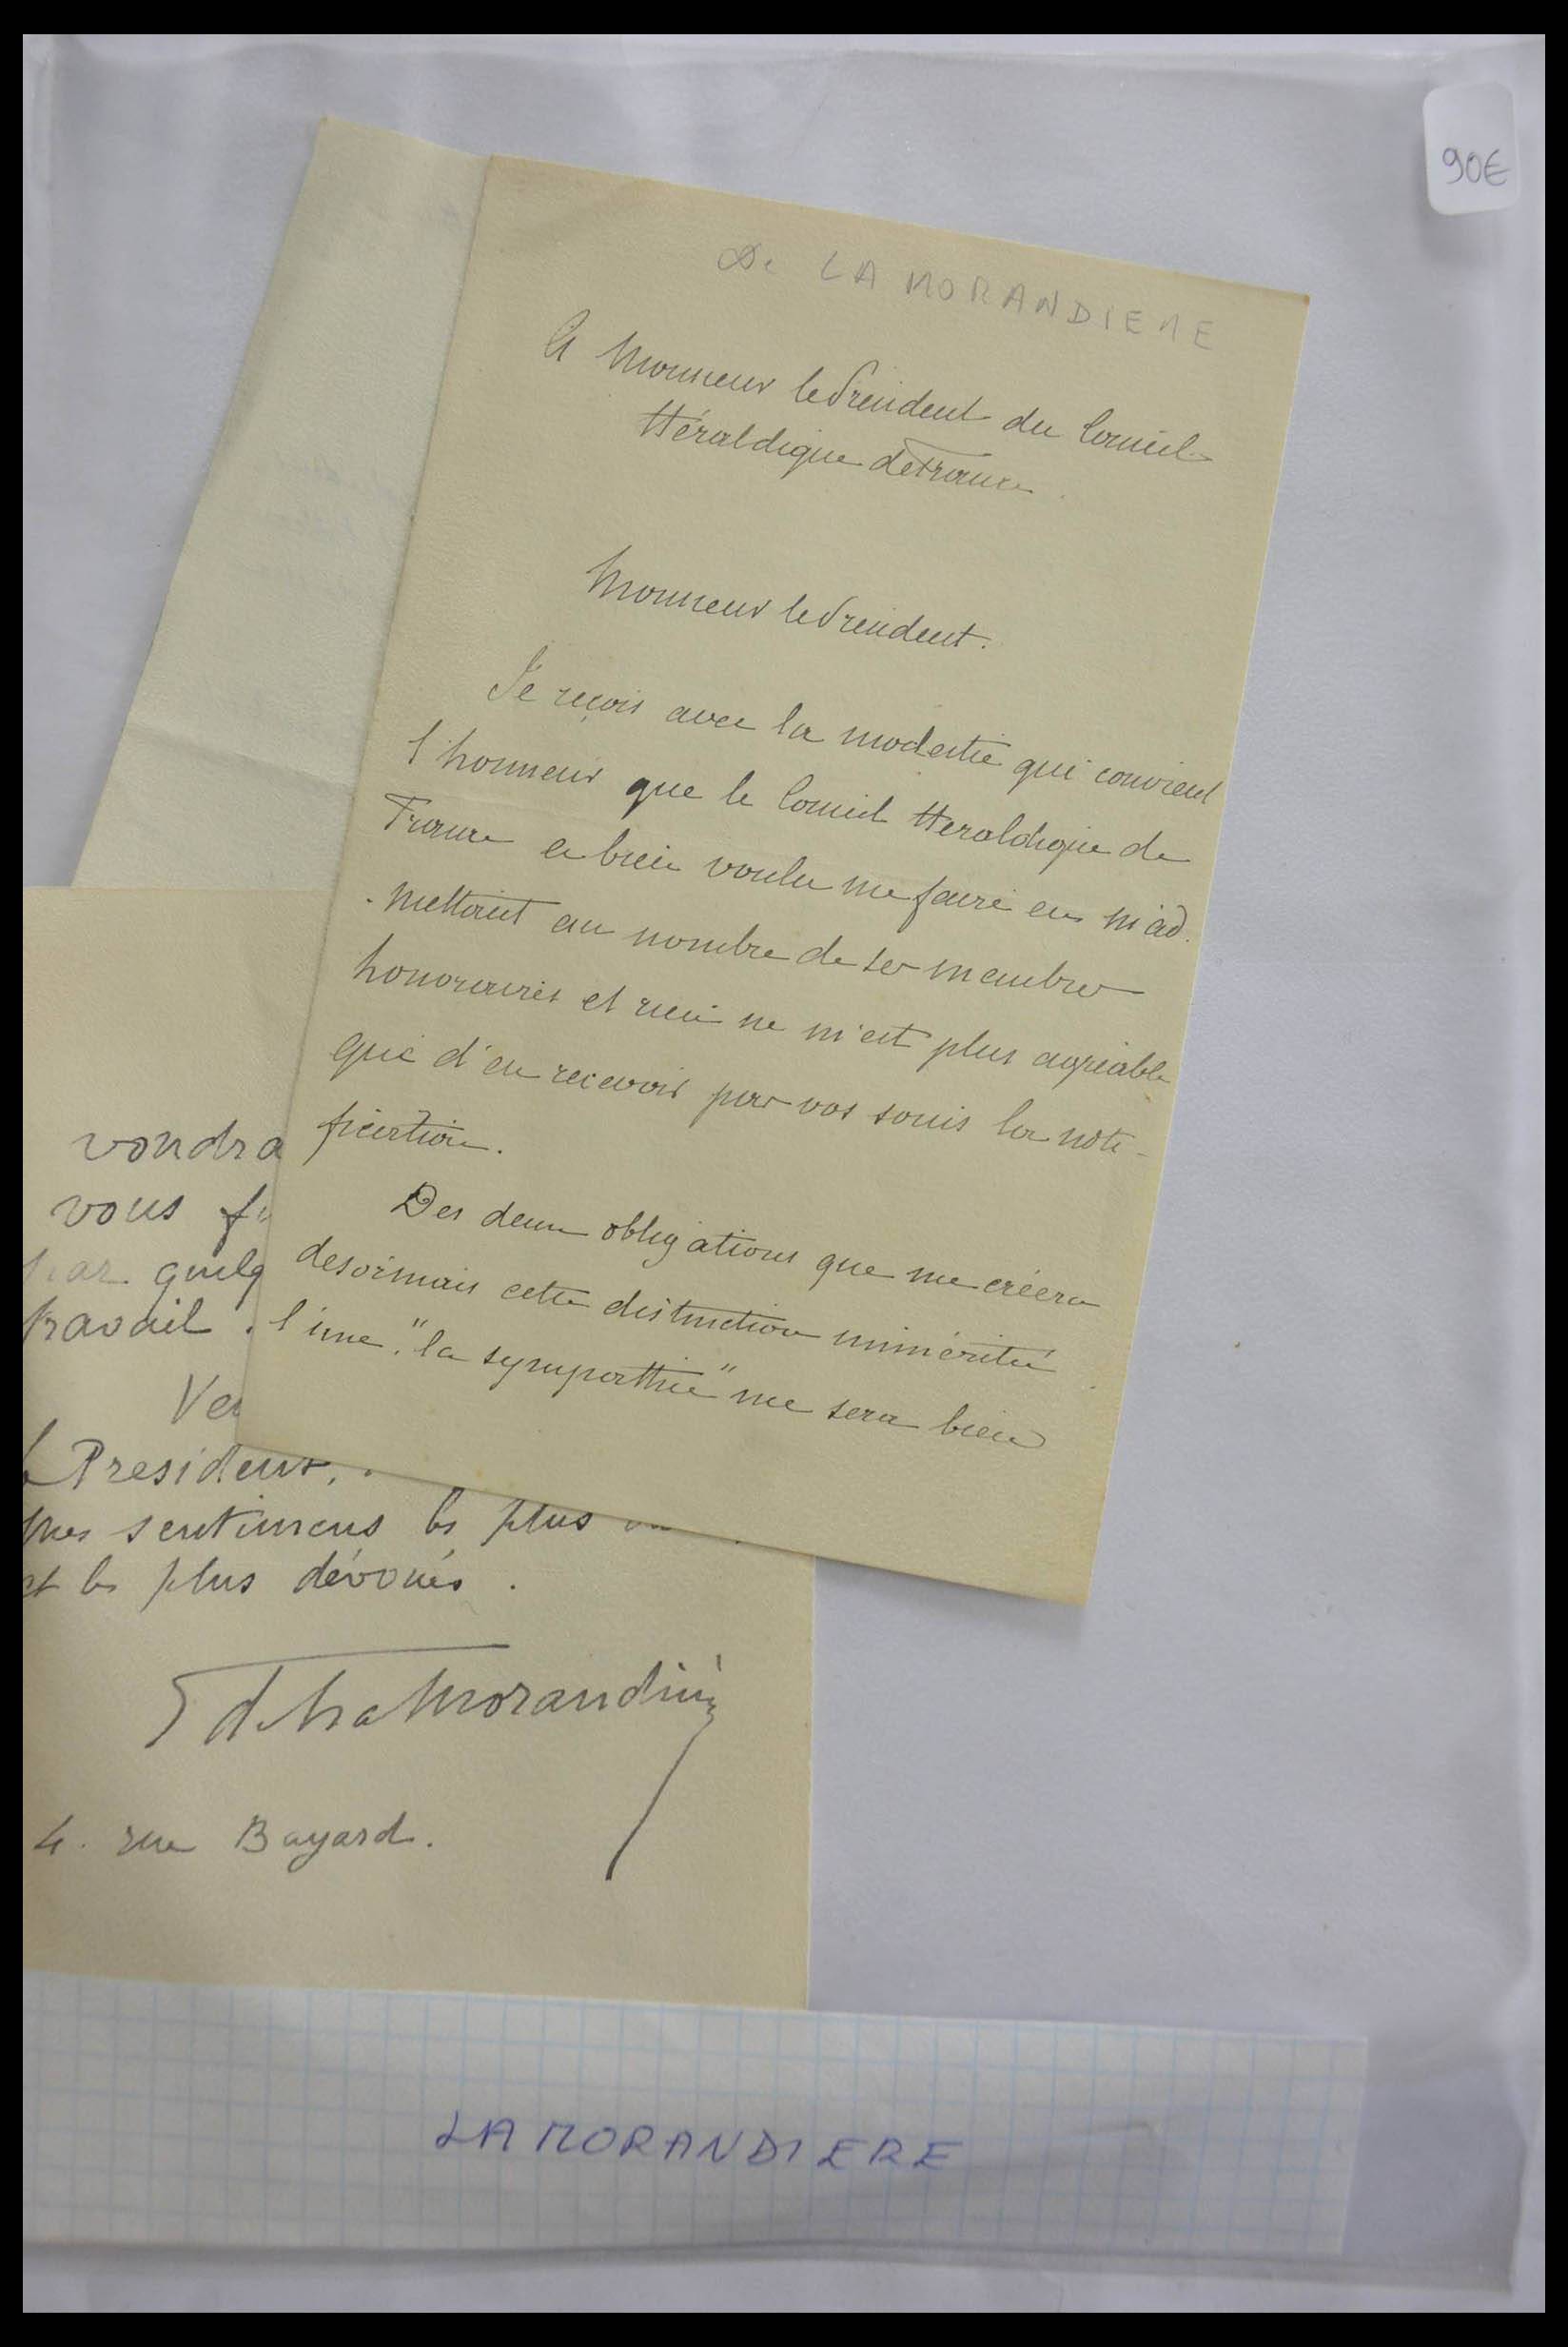 90€
De LA MORANDIERE
A Monsieur le Président du Conseil
Héraldique de France
Monsieur le President.
Je reçois avec la modestie qui convient
l'honneur que le Conseil Heraldique de
France a bien voulu me faire en m'ad-
-mettant au nombre de ses membres
honoraires et rien ne m'est plus agréable
que d'en recevoir par vos soins la noti-
fication.
Des deux obligations que me créera
desormais cette distinction imméritée
l'une, "la sympathie" me sera bien
voudra
vous f
par quelq
travail.
Ve
Président,
mes sentimens les plus
et les plus dévoués.
de La Morandière
4. rue Bayard.
LA MORANDIERE